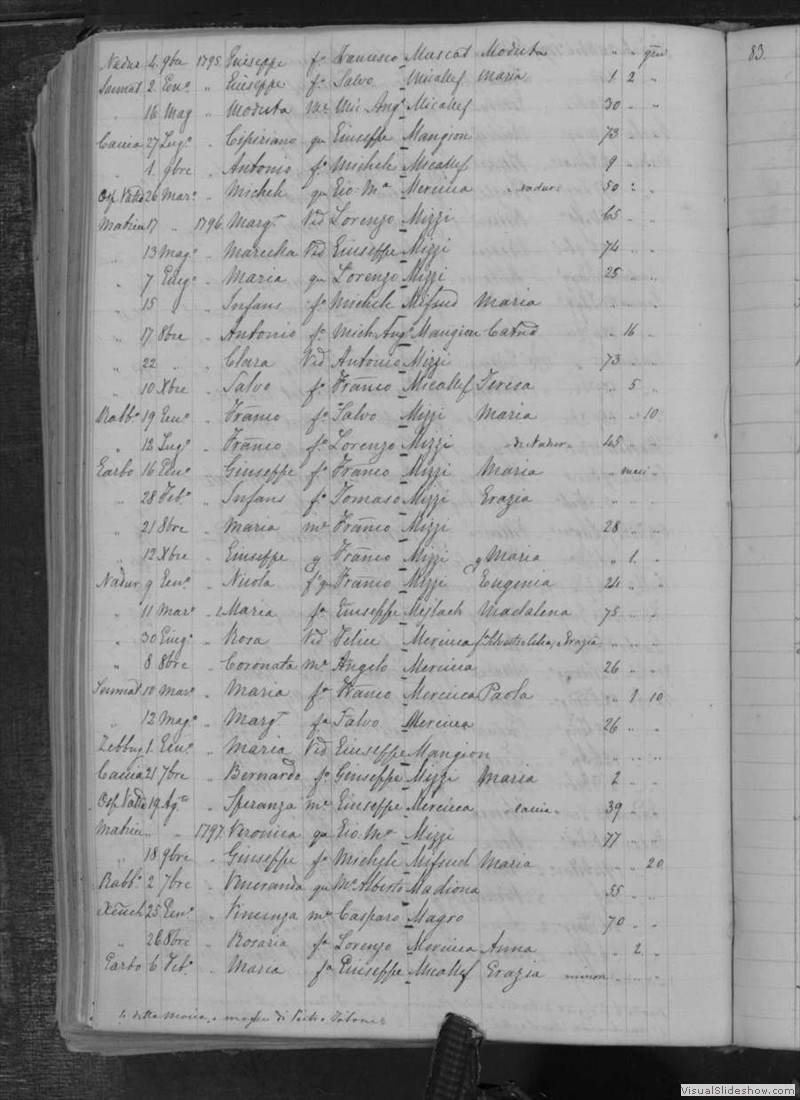 83
Nadur 4 9bre 1795 Giuseppe fo Francesco Muscat Modesta " " gni
Sannat 2 Geno " Giuseppe fo Salvo Micallef Maria 1 2 "
" 16 Mag " Modesta me Mic Ango Micallef 30 " "
Caccia 27 Lugo " Cipriano qu Giuseppe Mangion 73 " "
" 1 9bre " Antonio fo Michele Micallef 9 " "
Osp Vitto 26 Maro " Michele qu Gio Ma Mercieca " nadur " 50 " "
Matrice 17 " 1796 Margta Vid Lorenzo Mizzi 65 " "
" 13 Mago " Maruzka Vid Giuseppe Mizzi 74 " "
" 7 Giugo " Maria qu Lorenzo Mizzi 25 " "
" 15 " " Infans fo Michele Mifsud Maria " " "
" 17 8bre " Antonio fo Mich Ango Mangion Catna " 16 "
" 22 " " Clara Vid Antonio Mizzi 73 " "
" 10 Xbre " Salvo fo Franco Micallef Teresa " 5 "
Rabbo 19 Geno " Franco fo Salvo Mizzi Maria " " 10
" 12 Lugo " Franco fo Lorenzo Mizzi " di Nadur " 45 " "
Garbo 16 Geno " Giuseppe fo Franco Mizzi Maria " mesi "
" 28 Febo " Infans fo Tomaso Mizzi Grazia " " "
" 21 8bre " Maria me Franco Mizzi 28 " "
" 12 Xbre " Giuseppe g Franco Mizzi g Maria " 1 "
Nadur 9 Geno " Nicola fo qu Franco Mizzi Eugenia 24 " "
" 11 Maro " Maria fa Giuseppe Mejlach Madalena 75 " "
" 30 Giugo " Rosa Vid Felice Mercieca Grazia " " "
" 8 8bre " Coronata me Angelo Mercieca 26 " "
Sannat 10 Maro " Maria fa Franco Mercieca Paola " 1 10
" 12 Mago " Margta fa Salvo Mercieca 26 " "
Zebbug 1 Geno " Maria Vid Giuseppe Mangion " " "
Caccia 21 7bre " Bernardo fo Giuseppe Mizzi Maria 2 " "
Osp Vitto 19 Agto " Speranza me Giuseppe Mercieca " caccia " 39 " "
Matrice " " 1797 Veronica qu Gio Ma Mizzi 77 " "
" 18 9bre " Giuseppe fo Michele Mifsud Maria " " 20
Rabbo 2 7bre " Veneranda qu Mo Alberto Madiona 55 " "
Xeuch 25 Geno " Vincenza me Gasparo Magro 70 " "
" 26 8bre " Rosaria fa Lorenzo Mercieca Anna " 2 "
Garbo 6 Febo " Maria fa Giuseppe Micallef Grazia minore " " "
detta moglie di Pietro
VisualSlideshow.com